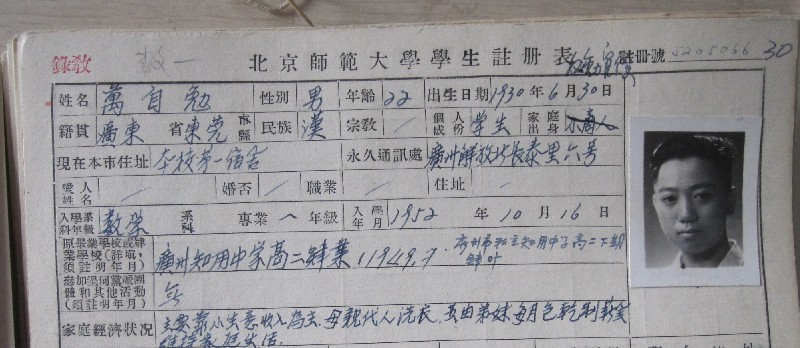 錄教 數一 北京師範大學學生註册表 註册號 5205066 30
姓名 萬自勉 性別 男 年齡 22 出生日期 1930年6月30日
籍貫 廣東省東莞市縣 民族 漢 宗教 / 個人成份 学生 家庭出身 小商人
現在本市住址 本校第一宿舍 永久通訊處 廣州解放北長泰里六号
愛人姓名 / 婚否 / 職業 / 住址 /
入學系科年級 數学 系科 專業 一 年級 入學年月 1952年10月16日
原畢業學校或肄業學校(詳填,須註明年月) 廣州知用中学高二肄業(1949.7. 广州市私立知用中学高二下期肄叶
參加過何黨派團體和其他活動(須註明年月) 无
家庭經濟状况 主要靠小生意收入為主、母親代人洗衣、
維持家庭生活.